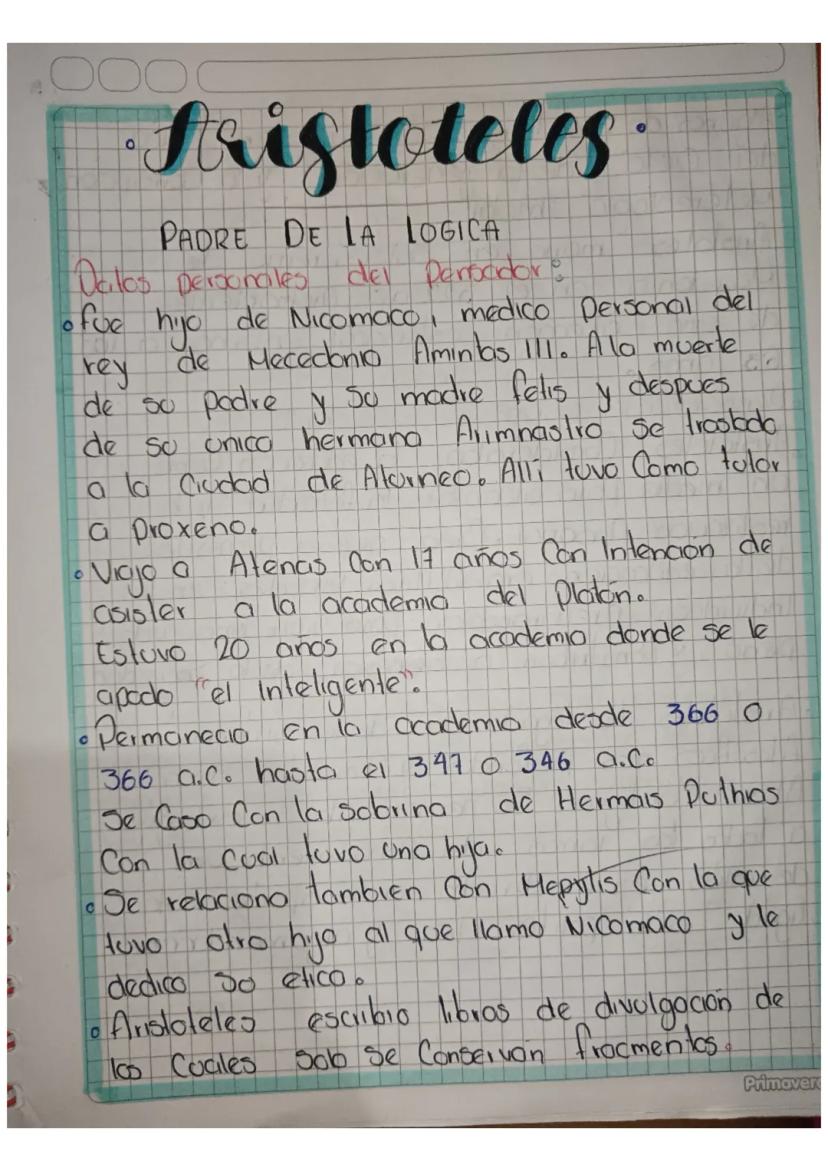 Aristoteles
PADRE DE LA LOGICA
Datos personales del pensador:
fue hijo de Nicomaco, medico personal del
rey de Macedonio Amintas III. A la muerte
de su padre y su madre felis y despues
de su unico hermano Arimnastro se traslado
a la ciudad de Atarneo. Allí tuvo Como tutor
a proxeno.
Viajo a Atenas con 17 años Con Intencion de
asister a la academia del Platón.
Estuvo 20 años en la academia donde se le
apodo "el inteligente".
Permanecio en la academia desde 366 o
366 a.C. hasta el 347 o 346 a.C.
Se Caso Con la sobrina de Hermais Puthias
Con la cual tuvo una hija.
Se relaciono tambien Con Hepytis Con la que
tuvo otro hijo al que llamo Nicomaco y le
dedico su etica.
Aristoteles escribio libros de divulgacion de
los Cuales solo se Conservan fracmentos.
Primavera